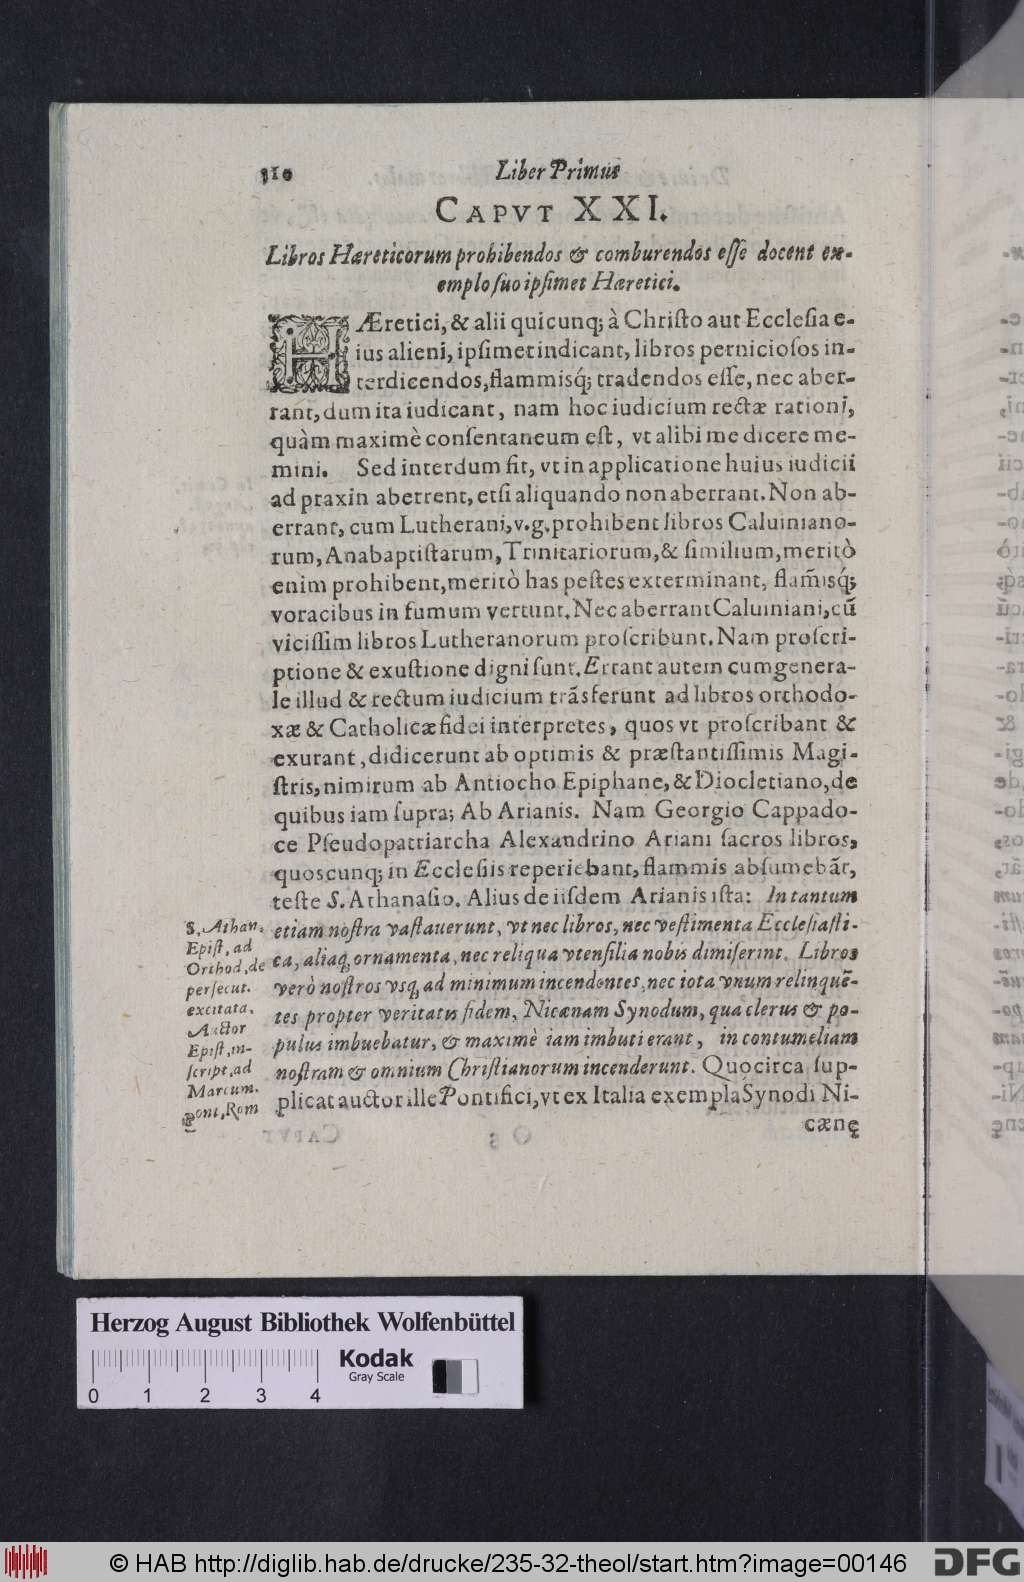 110 Liber Primus
CAPVT XXI.
Libros Hæreticorum prohibendos & comburendos eſſe docent ex-
emplo ſuo ipſimet Hæretici.
HÆretici, & alii quicunq; à Chriſto aut Eccleſia e-
ius alieni, ipſimet indicant, libros pernicioſos in-
terdicendos, flammisq́; tradendos eſſe, nec aber-
rant, dum ita iudicant, nam hoc iudicium rectæ rationi,
quàm maximè conſentaneum eſt, vt alibi me dicere me-
mini. Sed interdum fit, vt in applicatione huius iudicii
ad praxin aberrent, etſi aliquando non aberrant. Non ab-
errant, cum Lutherani, v. g. prohibent libros Caluiniano-
rum, Anabaptiſtarum, Trinitariorum, & ſimilium, meritò
enim prohibent, meritò has peſtes exterminant, flam̃isq́;
voracibus in fumum vertunt. Nec aberrant Caluiniani, cũ
viciſſim libros Lutheranorum proſcribunt. Nam proſcri-
ptione & exuſtione digni ſunt. Errant autem cum genera-
le illud & rectum iudicium trãsferunt ad libros orthodo-
xæ & Catholicæ fidei interpretes, quos vt proſcribant &
exurant, didicerunt ab optimis & præſtantiſſimis Magi-
ſtris, nimirum ab Antiocho Epiphane, & Diocletiano, de
quibus iam ſupra; Ab Arianis. Nam Georgio Cappado-
ce Pſeudopatriarcha Alexandrino Ariani ſacros libros,
quoscunq; in Eccleſiis reperiebant, flammis abſumebãt,
teſte S. Athanaſio. Alius de iiſdem Arianis iſta: In tantum
etiam noſtra vaſtauerunt, vt nec libros, nec veſtimenta Eccleſiaſti-
ca, aliaq́ ornamenta, nec reliqua vtenſilia nobis dimiſerint. Libros
verò noſtros vsq́ ad minimum incendentes, nec iota vnum relinquẽ-
tes propter veritatis fidem, Nicænam Synodum, qua clerus & po-
pulus imbuebatur, & maximè iam imbuti erant, in contumeliam
noſtram & omnium Chriſtianorum incenderunt. Quocirca ſup-
plicat auctor ille Pontifici, vt ex Italia exempla Synodi Ni-
cænę
S. Athan.
Epiſt. ad
Orthod. de
perſecut.
excitata.
Auctor
Epiſt. in-
ſcript. ad
Marcum.
pont. Rom
Herzog August Bibliothek Wolfenbüttel
Kodak
Gray Scale
0 1 2 3 4
© HAB http://diglib.hab.de/drucke/235-32-theol/start.htm?image=00146
DFG